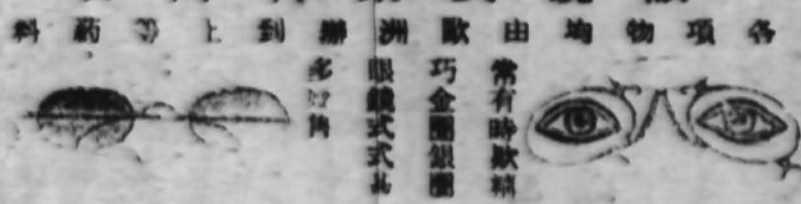 各項物均由歐洲辦到上等葯料
常有時款精
巧金圈銀圈
眼鏡式式甚
多